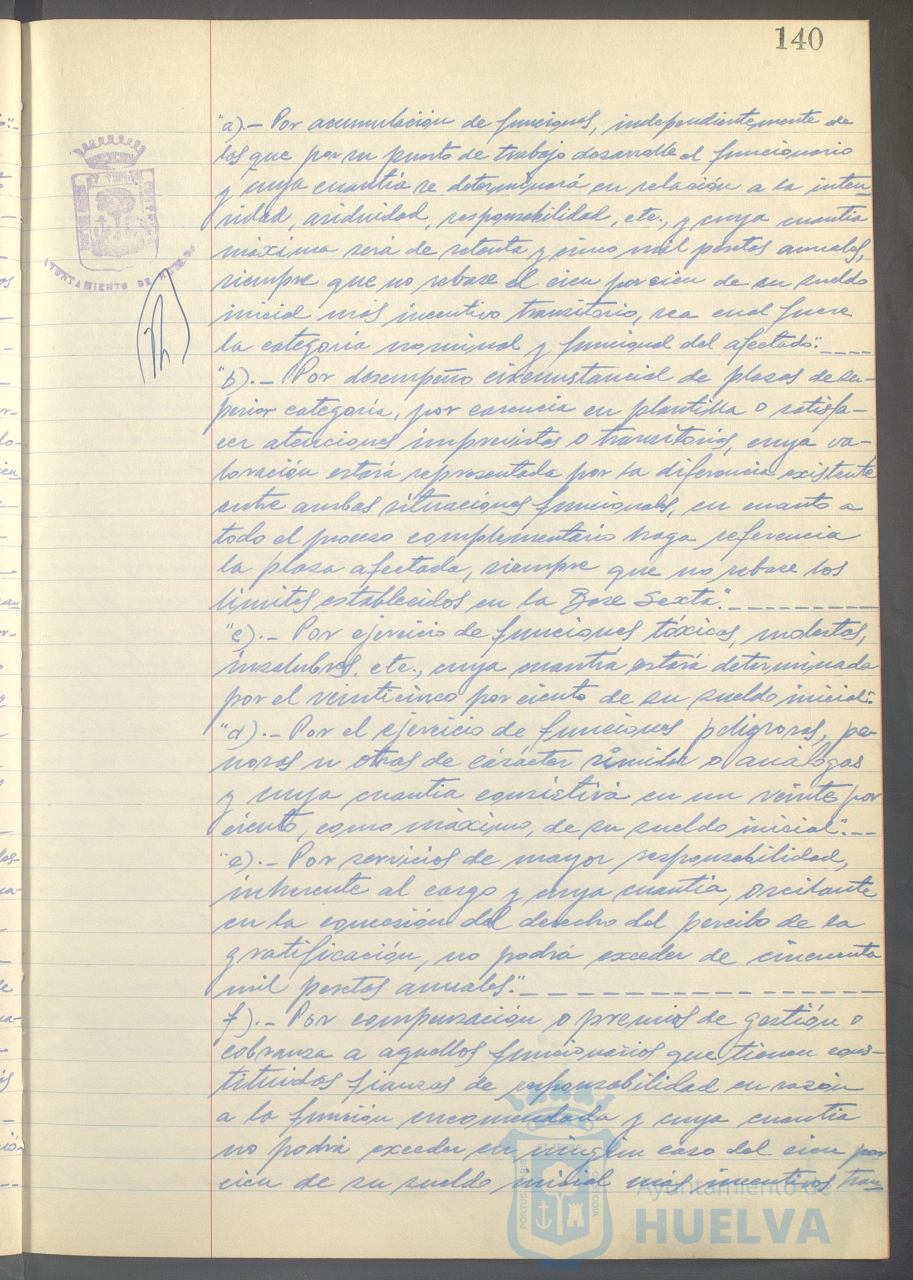 140
"a).- Por acumulación de funciones, independientemente de
las que por su puesto de trabajo desarrolle el funcionario
y cuya cuantía se determinará en relación a la inten
sidad, asiduidad, responsabilidad, etc., y cuya cuantía
máxima será de setenta y cinco mil pesetas anuales,
siempre que no rebase el cien por cien de su sueldo
inicial más incentivo transitorio, sea cual fuere
la categoría nominal y funcional del afectado".----
"b).- Por desempeño circunstancial de plazas de su-
perior categoría, por carencia en plantilla o satisfa-
cer atenciones imprevistas o transitorias, cuya va-
loración estará representada por la diferencia existente
entre ambas situaciones funcionales, en cuanto a
todo el proceso complementario haga referencia
la plaza afectada, siempre que no rebase los
límites establecidos en la Base Sexta".---------
"c).- Por ejercicio de funciones tóxicas, molestas,
insalubres, etc., cuya cuantía estará determinada
por el veinticinco por ciento de su sueldo inicial".
"d).- Por el ejercicio de funciones peligrosas, pe-
nosas u otras de carácter similar o análogas
y cuya cuantía consistirá en un veinte por
ciento, como máximo, de su sueldo inicial".---
"e).- Por servicios de mayor responsabilidad,
inherente al cargo y cuya cuantía, oscilante
en la concesión del derecho del percibo de la
gratificación, no podrá exceder de cincuenta
mil pesetas anuales".----------------
f).- Por compensación o premios de gestión o
cobranza a aquellos funcionarios que tienen cons-
tituidas fianzas de responsabilidad en razón
a la función encomendada y cuya cuantía
no podrá exceder en ningún caso del cien por
cien de su sueldo inicial más incentivos tran
AYUNTAMIENTO DE HUELVA
Ayuntamiento de
HUELVA